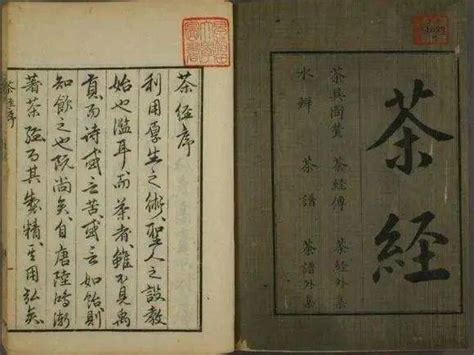 茶経
茶具啚賛 茶経傳 茶経外集
水辨 茶譜 茶譜外集
茶經序
利用厚生之術聖人之設教
始也濫耳而茶者雖不見禹
貢而诗或言苦或言如飴則
知飲之也既尚矣自唐陸鴻漸
著茶経而其製精其用弘矣
茶經序